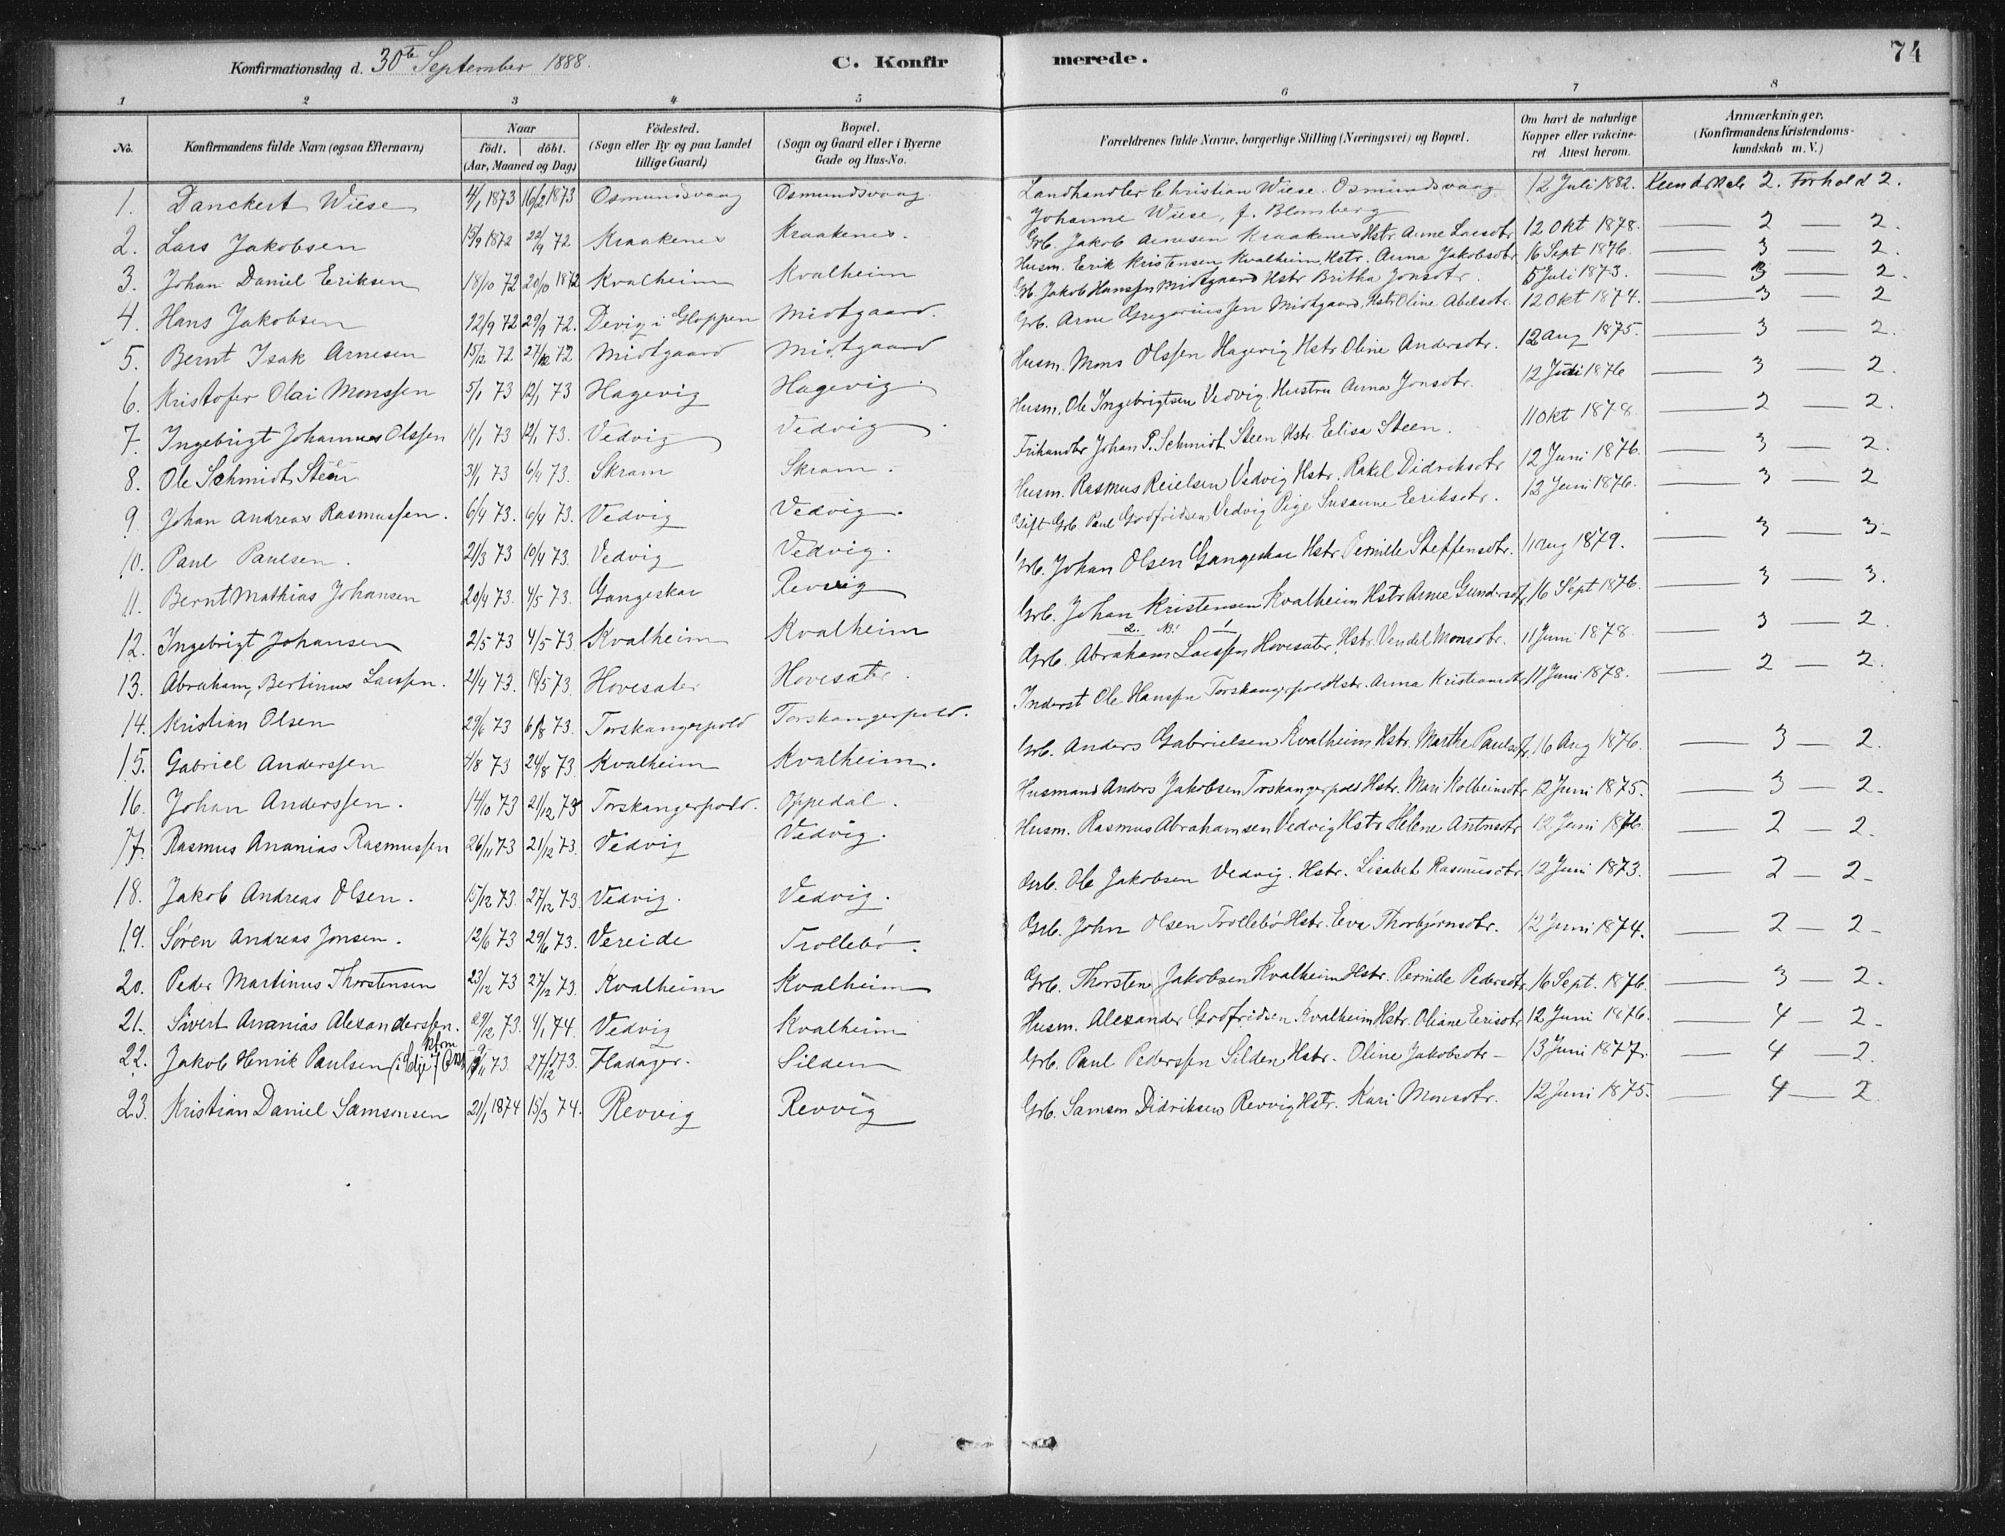 Konfirmationsdag d. 30te September 1888. C. Konfirmerede. 74
1 2 3 4 5 6 7 8
No. Konfirmandens fulde Navn (ogsaa Efternavn) Naar født. døbt. (Aar, Maaned og Dag) Fødested. (Sogn eller By og paa Landet tillige Gaard) Bopæl. (Sogn og Gaard eller i Byerne Gade og Hus-No. Forældrenes fulde Navne, borgerlige Stilling (Næringsvei) og Bopæl. Om havt de naturlige Kopper eller vakcineret Attest herom. Anmærkninger. (Konfirmandens Kristendomskundskab m. V.)
1. Danckert Wiese 4/1 1873 16/2 1873 Osmundsvaag Osmundsvaag Landhandler Christian Wiese Osmundsvaag 12 Juli 1882. Kundskab 2. Forhold 2.
Johanne Wiese, f. Blomberg
2. Lars Jakobsen 15/9 1872 22/9 72 Kraakenes Kraakenes. Grb. Jakob Arnesen Kraakenes Hstr. Anne Larsdtr. 12 Okt 1878. 2 2.
3. Johan Daniel Eriksen 18/10 72 20/10 1872 Kvalheim Kvalheim Husm. Erik Kristensen Kvalheim Hstr. Anna Jakobsdtr 16 Sept 1876. 3 2.
4. Hans Jakobsen 12/9 72 29/9 72. Devig i Gloppen Midtgaard. Grb. Jakob Hanssen Midtgaard Hstr Britha Jonsdtr. 5 Juli 1873. 3 2.
5. Bernt Isak Arnesen 15/12 72 72 Midtgaard Midtgaard Grb. Arne Gregoriussen Midtgaard, Hstr Oline Abelsdtr. 12 Okt 1874. 3 2
6. Kristofer Olai Monssen 5/1 73 12/1 73 Hagevig Hagevig. Husm. Mons Olssen Hagevig Hstr Oline Andersdtr. 12 Aug 1875. 3 2.
7. Ingebrigt Johannes Olssen 11/1 73 12/1 73. Vedvig Vedvig. Husm. Ole Ingebrigtsen Vedvig. Hustru Anna Jonsdtr. 12 Juli 1876 3 2.
8. Ole Schmidt Steen 31/1 73 6/4 73. Skram Skram. Frihandler Johan P. Schmidt Steen Hstr. Elisa Steen. 11 Okt 1878. 2 2.
9. Johan Andreas Rasmussen. 6/4 73. 6/4 73. Vedvig Vedvig. Husm. Rasmus Reielsen Vedvig Hstr. Rakel Didriksdtr 12 Juni 1876. 3 2.
10. Paul Paulsen. 21/3 73 10/4 73. Vedvig Vedvig. Gift Grb. Paul Godfridsen Vedvig Pige Susanne Eriksdtr. 12 Juni 1876. 3 2
11. Bernt Mathias Johansen 20/4 73. 4/5 73. Gangeskar Revvig Grb. Johan Olsen Gangeskar Hstr. Pernille Steffensdtr. 11 Aug 1879. 3 3.
12. Ingebrigt Johansen 2/5 73 4/5 73. Kvalheim Kvalheim Grb. Johan Kristensen Kvalheim Hstr Anne Gundersdtr 16 Sept 1876. 3 3.
13. Abraham, Bertinus Larssen. 21/4 73. 18/5 73. Hovesæter Hovesæter. Grb. Abraham Larssen Hovesæter. Hstr. Vendel Monsdtr. 11 Juni 1878. 3 2.
14. Kristian Olsen 29/6 73 6/8 73. Torskangerpold Torskangerpold. Inderst Ole Hanssen Torskangerpold Hstr. Anna Kristiansdtr 11 Juni 1878. 2 2.
15. Gabriel Anderssen 4/8 73 24/8 73. Kvalheim Kvalheim. Grb. Anders Gabrielsen Kvalheim Hstr. Marthe Paulsdtr. 16 Aug 1876. 3 2.
16. Johan Anderssen. 14/10 73 21/12 73 Torskangerpold. Oppedal. Husmand Anders Jakobsen Torskangerpold Hstr. Mari Kolbeinsdtr 12 Juni 1875. 3 2.
17. Rasmus Ananias Rasmussen 26/11 73 21/12 73. Vedvig Vedvig. Husm. Rasmus Abrahamsen Vedvig Hstr Helene Antnsdtr 12 Juni 1876. 2 2.
18. Jakob Andreas Olsen. 15/12 73. 27/12 73. Vedvig. Vedvig. Grb. Ole Jakobsen Vedvig. Hstr. Lisabet Rasmusdtr 12 Juni 1873. 2 2
19. Søren Andreas Jonsen. 12/6 73 29/6 73. Vereide Trollebø. Grb. John Olsen Trollebø Hstr. Eva Thorbjørnsdtr. 12 Juni 1874. 2 2
20. Peder Martinus Thorstensen 23/12 73 27/12 73. Kvalheim Kvalheim Grb. Thorsten Jakobsen Kvalheim Hstr. Pernille Pedersdtr 16 Sept. 1876. 3 2.
21. Sivert Ananias Alexanderssen. 29/12 73. 4/1 74. Vedvig Kvalheim Husm. Alexander Godfridsen Kvalheim Hstr. Oliane Ericsdtr 12 Juni 1876. 4 2
22. Jakob Henrik Paulsen 73. 27/12 73. Fladager. Silden Grb. Paul Pederssen Silden Hstr. Oline Jakobsdtr 13 Juni 1877. 4 2.
23. Kristian Daniel Samsonsen 21/1 1874 15/3 74. Revvig Revvig Grb. Samson Didriksen Revvig Hstr. Kari Monsdtr. 12 Juni 1875. 4 2.